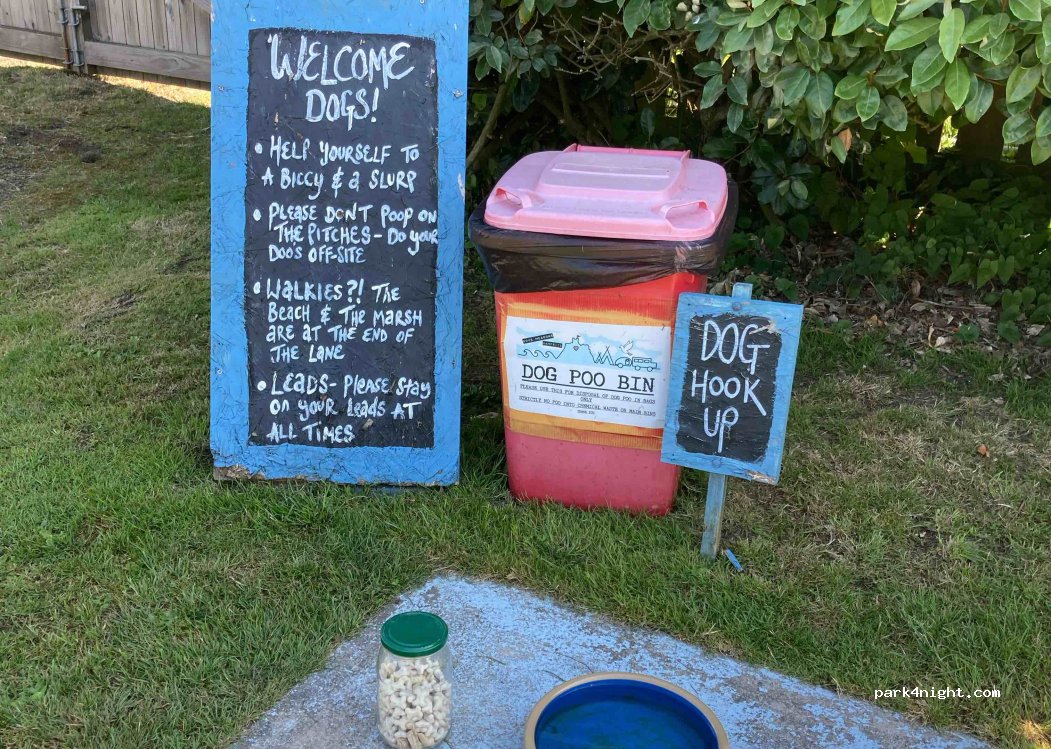 WELCOME
DOGS!
• HELP YOURSELF TO
A BICCY & A SLURP
• PLEASE DON'T POOP ON
THE PITCHES - DO YOUR
DOO'S OFF-SITE
• WALKIES?! THE
BEACH & THE MARSH
ARE AT THE END OF
THE LANE
• LEADS - PLEASE STAY
ON YOUR LEADS AT
ALL TIMES
DOG POO BIN
PLEASE USE THIS FOR DISPOSAL OF DOG POO IN BAGS
ONLY
STRICTLY NO POO INTO CHEMICAL WASTE OR MAIN BINS
DOG
HOOK
UP
park4night.com